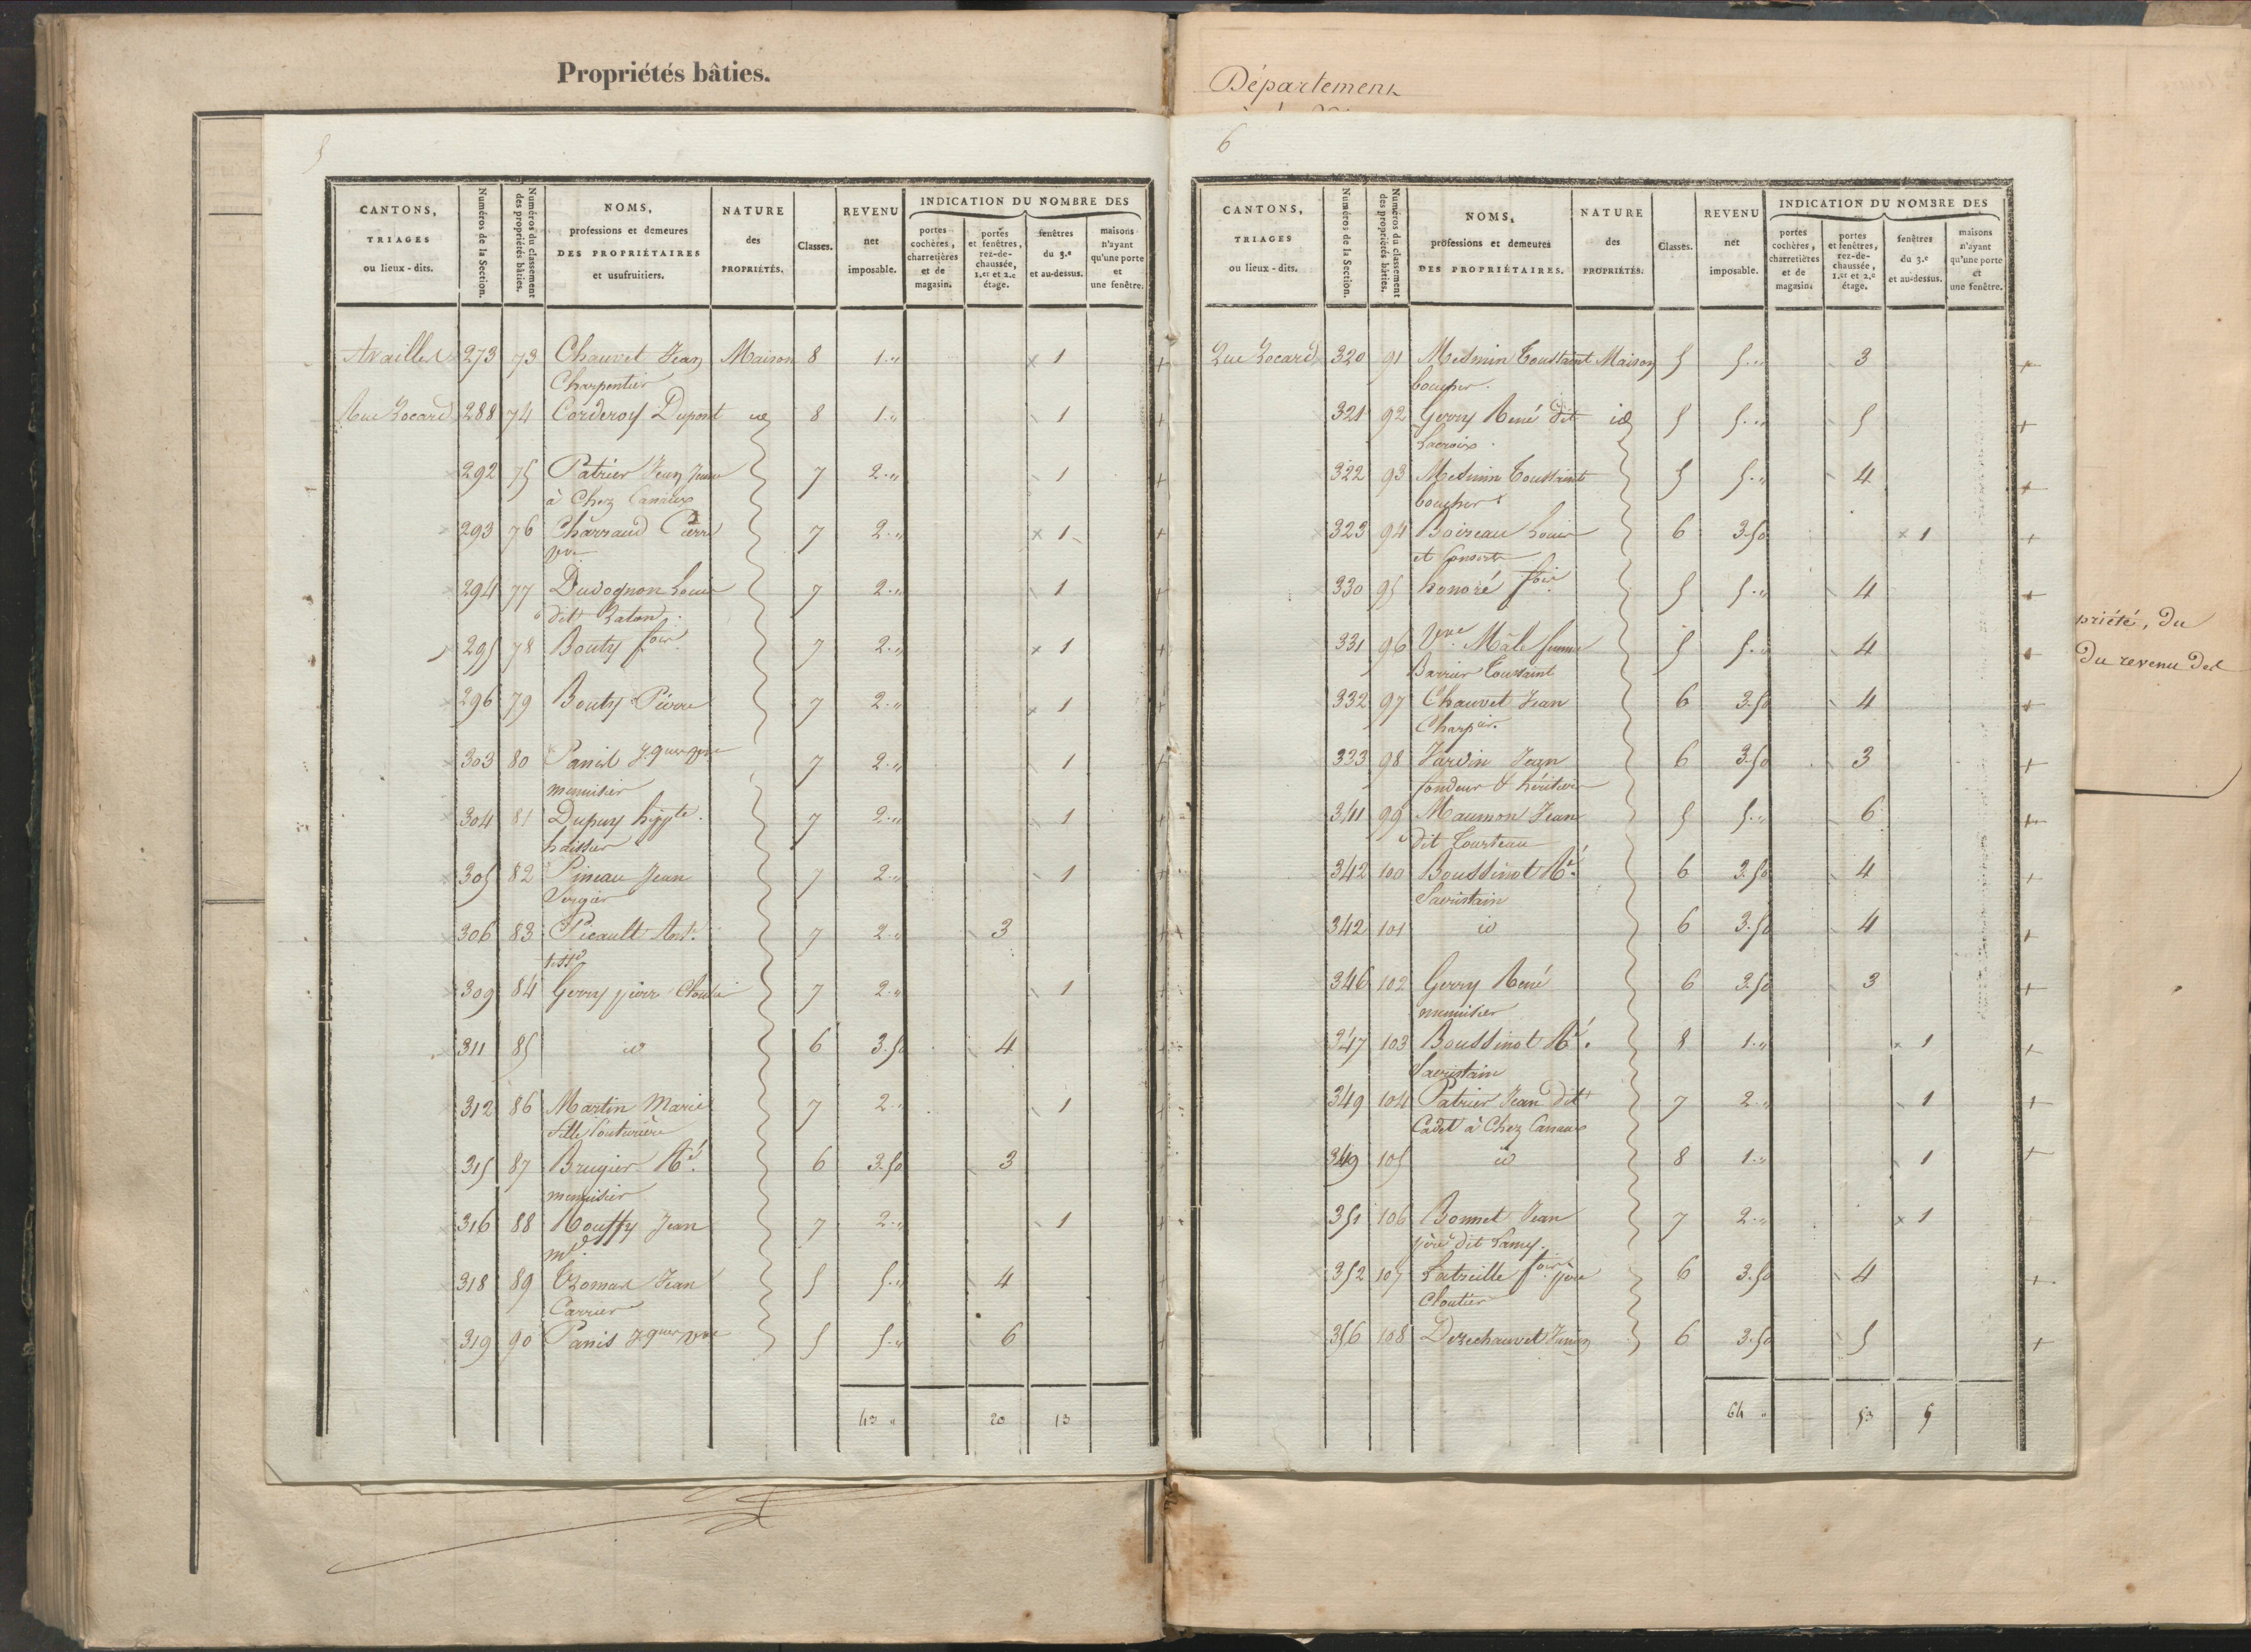 Propriétés bâties.
Département
5
CANTONS,
TRIAGES
ou lieux-dits.
Numéros de la Section.
Numéros du classement
des propriétés bâties.
NOMS,
professions et demeures
DES PROPRIÉTAIRES
et usufruitiers.
NATURE
des
PROPRIÉTÉS.
Classes.
REVENU
net
imposable.
INDICATION DU NOMBRE DES
portes
cochères,
charretières
et de
magasin.
portes
et fenêtres,
rez-de-
chaussée,
1.er et 2.e
étage.
fenêtres
du 3.e
et au-dessus.
maisons
n'ayant
qu'une porte
et
une fenêtre.
Availles 273 73 Chauvet Jean Maison 8 1.„ x 1 +
Charpentier
Rue Locard 288 74 Corderoy Dupont id 8 1.„ 1 +
292 75 Patrier Jean 7 2.„ 1 +
à Chez Canaux
293 76 Charraud Pierre 7 2.„ x 1 +
294 77 Dudognon Louis 7 2.„ 1 +
dit Baton
295 78 Bouty fois 7 2.„ x 1 +
296 79 Bouty Pierre 7 2.„ x 1 +
303 80 Panis Jques 7 2.„ 1 +
menuisier
304 81 Dupuy hyyte. 7 2.„ 1 +
huissier
305 82 Pineau Jean 7 2.„ 1 +
Sergier
306 83 Picault Ant. 7 2.„ 3 +
tissd
309 84 Gerry pierre Cloutier 7 2.„ 1 +
311 85 id 6 3.50 4 +
312 86 Martin Marie 7 2.„ 1 +
fille Couturière
315 87 Brugier Ré. 6 3.50 3 +
menuisier
316 88 Rouffy Jean 7 2.„ 1 +
md.
318 89 Thomas Jean 5 5.„ 4 +
Carrier
319 90 Panis Jques 5 5.„ 6 +
42 „ 20 13
6
CANTONS,
TRIAGES
ou lieux-dits.
Numéros de la Section.
Numéros du classement
des propriétés bâties.
NOMS,
professions et demeures
DES PROPRIÉTAIRES.
NATURE
des
PROPRIÉTÉS.
Classes.
REVENU
net
imposable.
INDICATION DU NOMBRE DES
portes
cochères,
charretières
et de
magasin.
portes
et fenêtres,
rez-de-
chaussée,
1.er et 2.e
étage.
fenêtres
du 3.e
et au-dessus.
maisons
n'ayant
qu'une porte
et
une fenêtre.
Rue Locard 320 91 Mesmin Toussaint Maison 5 5.„ 3 +
boucher.
321 92 Gerry René dit id 5 5.„ 5 +
Lacroix.
322 93 Mesmin Toussaint 5 5.„ 4 +
boucher
323 94 Boireau Louis 6 3.50 x 1 +
et Consorts
330 95 honoré fois. 5 5.„ 4 +
331 96 Vve Mâle femme 5 5.„ 4 +
Barrier Toussaint
332 97 Chauvet Jean 6 3.50 4 +
Charpier.
333 98 Jardin Jean 6 3.50 3 +
fondeur & héritiers
341 99 Maumon Jean 5 5.„ 6 +
dit Tourteau
342 100 Boussinot Ré. 6 3.50 4 +
Sacristain
342 101 id 6 3.50 4 +
346 102 Gerry René 6 3.50 3 +
menuisier
347 103 Boussinot Ré. 8 1.„ x 1 +
Sacristain
349 104 Patrier Jean dit 7 2.„ 1 +
Cadet à Chez Canaux
349 105 id 8 1.„ 1 +
351 106 Bonnet Jean 7 2.„ x 1
père dit Lamy.
352 107 Latreille fois père 6 3.50 4 +
Cloutier
356 108 Dezechauvet 6 3.50 5 +
64 „ 53 5
priété, du
du revenu des